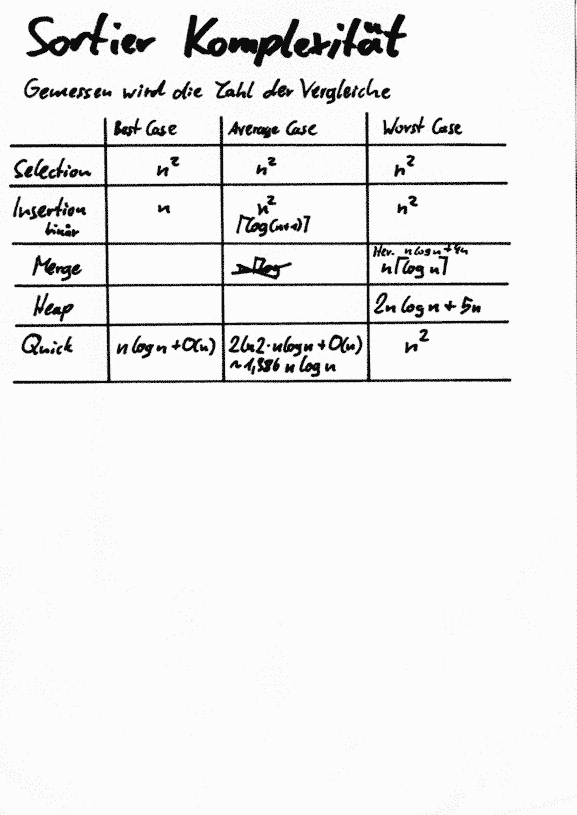 Sortier Komplexität
Gemessen wird die Zahl der Vergleiche
Best Case Average Case Worst Case
Selection n² n² n²
Insertion n n² n²
binär ⌈log(n+1)⌉
Merge Iter. n log n + 4n
n⌈log n⌉
Heap 2n log n + 5n
Quick n log n + O(n) 2ln2·n log n + O(n) n²
~1,386 n log n